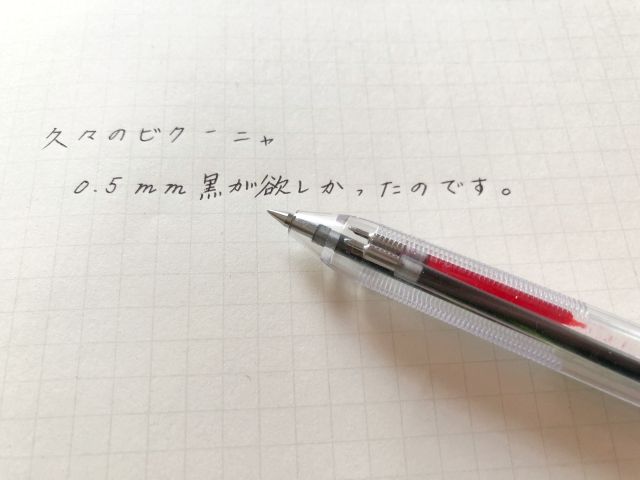 久々のビクーニャ
0.5mm黒が欲しかったのです。